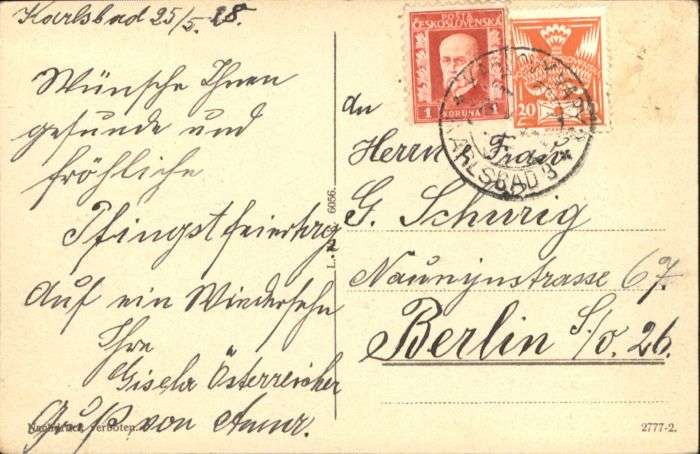 Karlsbad 25/5. 28.
Wünsche Ihnen
gesunde und
fröhliche
Pfingstfeiertag
Auf ein Wiedersehn
Ihre
Gisela Österreicher
Gruß von
Nachdruck verboten.
L. 6056.
POŠTA
ČESKOSLOVENSKÁ
1 KORUNA 1
20
KARLOVY VARY 3
KARLSBAD 3
An
Herrn
Frau
G. Schurig
Naunynstrasse 67.
Berlin S/o. 26.
2777-2.